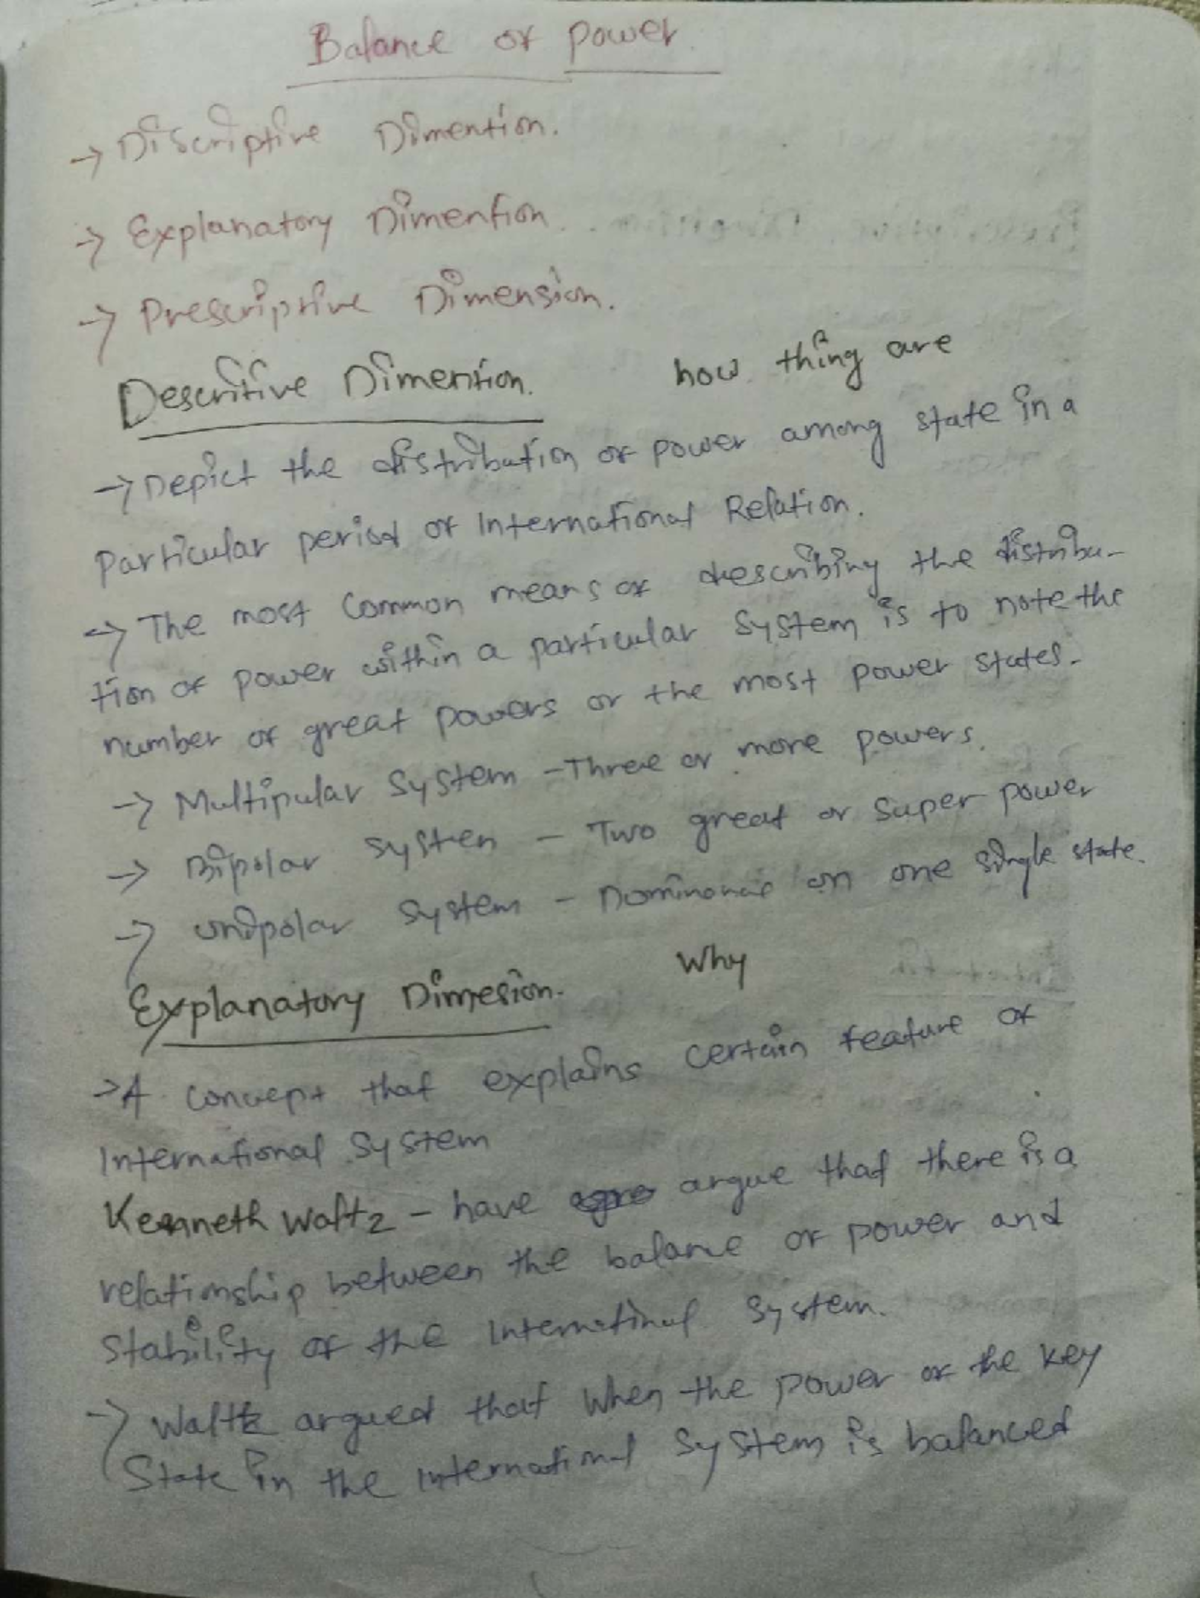 Balance of power
→ Discriptive Dimention.
→ Explanatory Dimention.
→ Prescriptive Dimension.
Descritive Dimention. how thing are
→ Depict the distribution of power among state in a
Particular period of International Relation.
→ The most common means of describing the distribu-
tion of power within a particular system is to note the
number of great powers or the most power states.
→ Multipular system - Three or more powers.
→ Bipolar systen - Two great or super power
→ unipolar system - Dominance on one single state.
Explanatory Dimesion. Why
→ A concept that explains certain feature of
International System
Kenneth Waltz - have argue that there is a
relationship between the balance of power and
Stability of the Internatinal system.
→ Waltz argued that when the power of the key
State in the International System is balanced